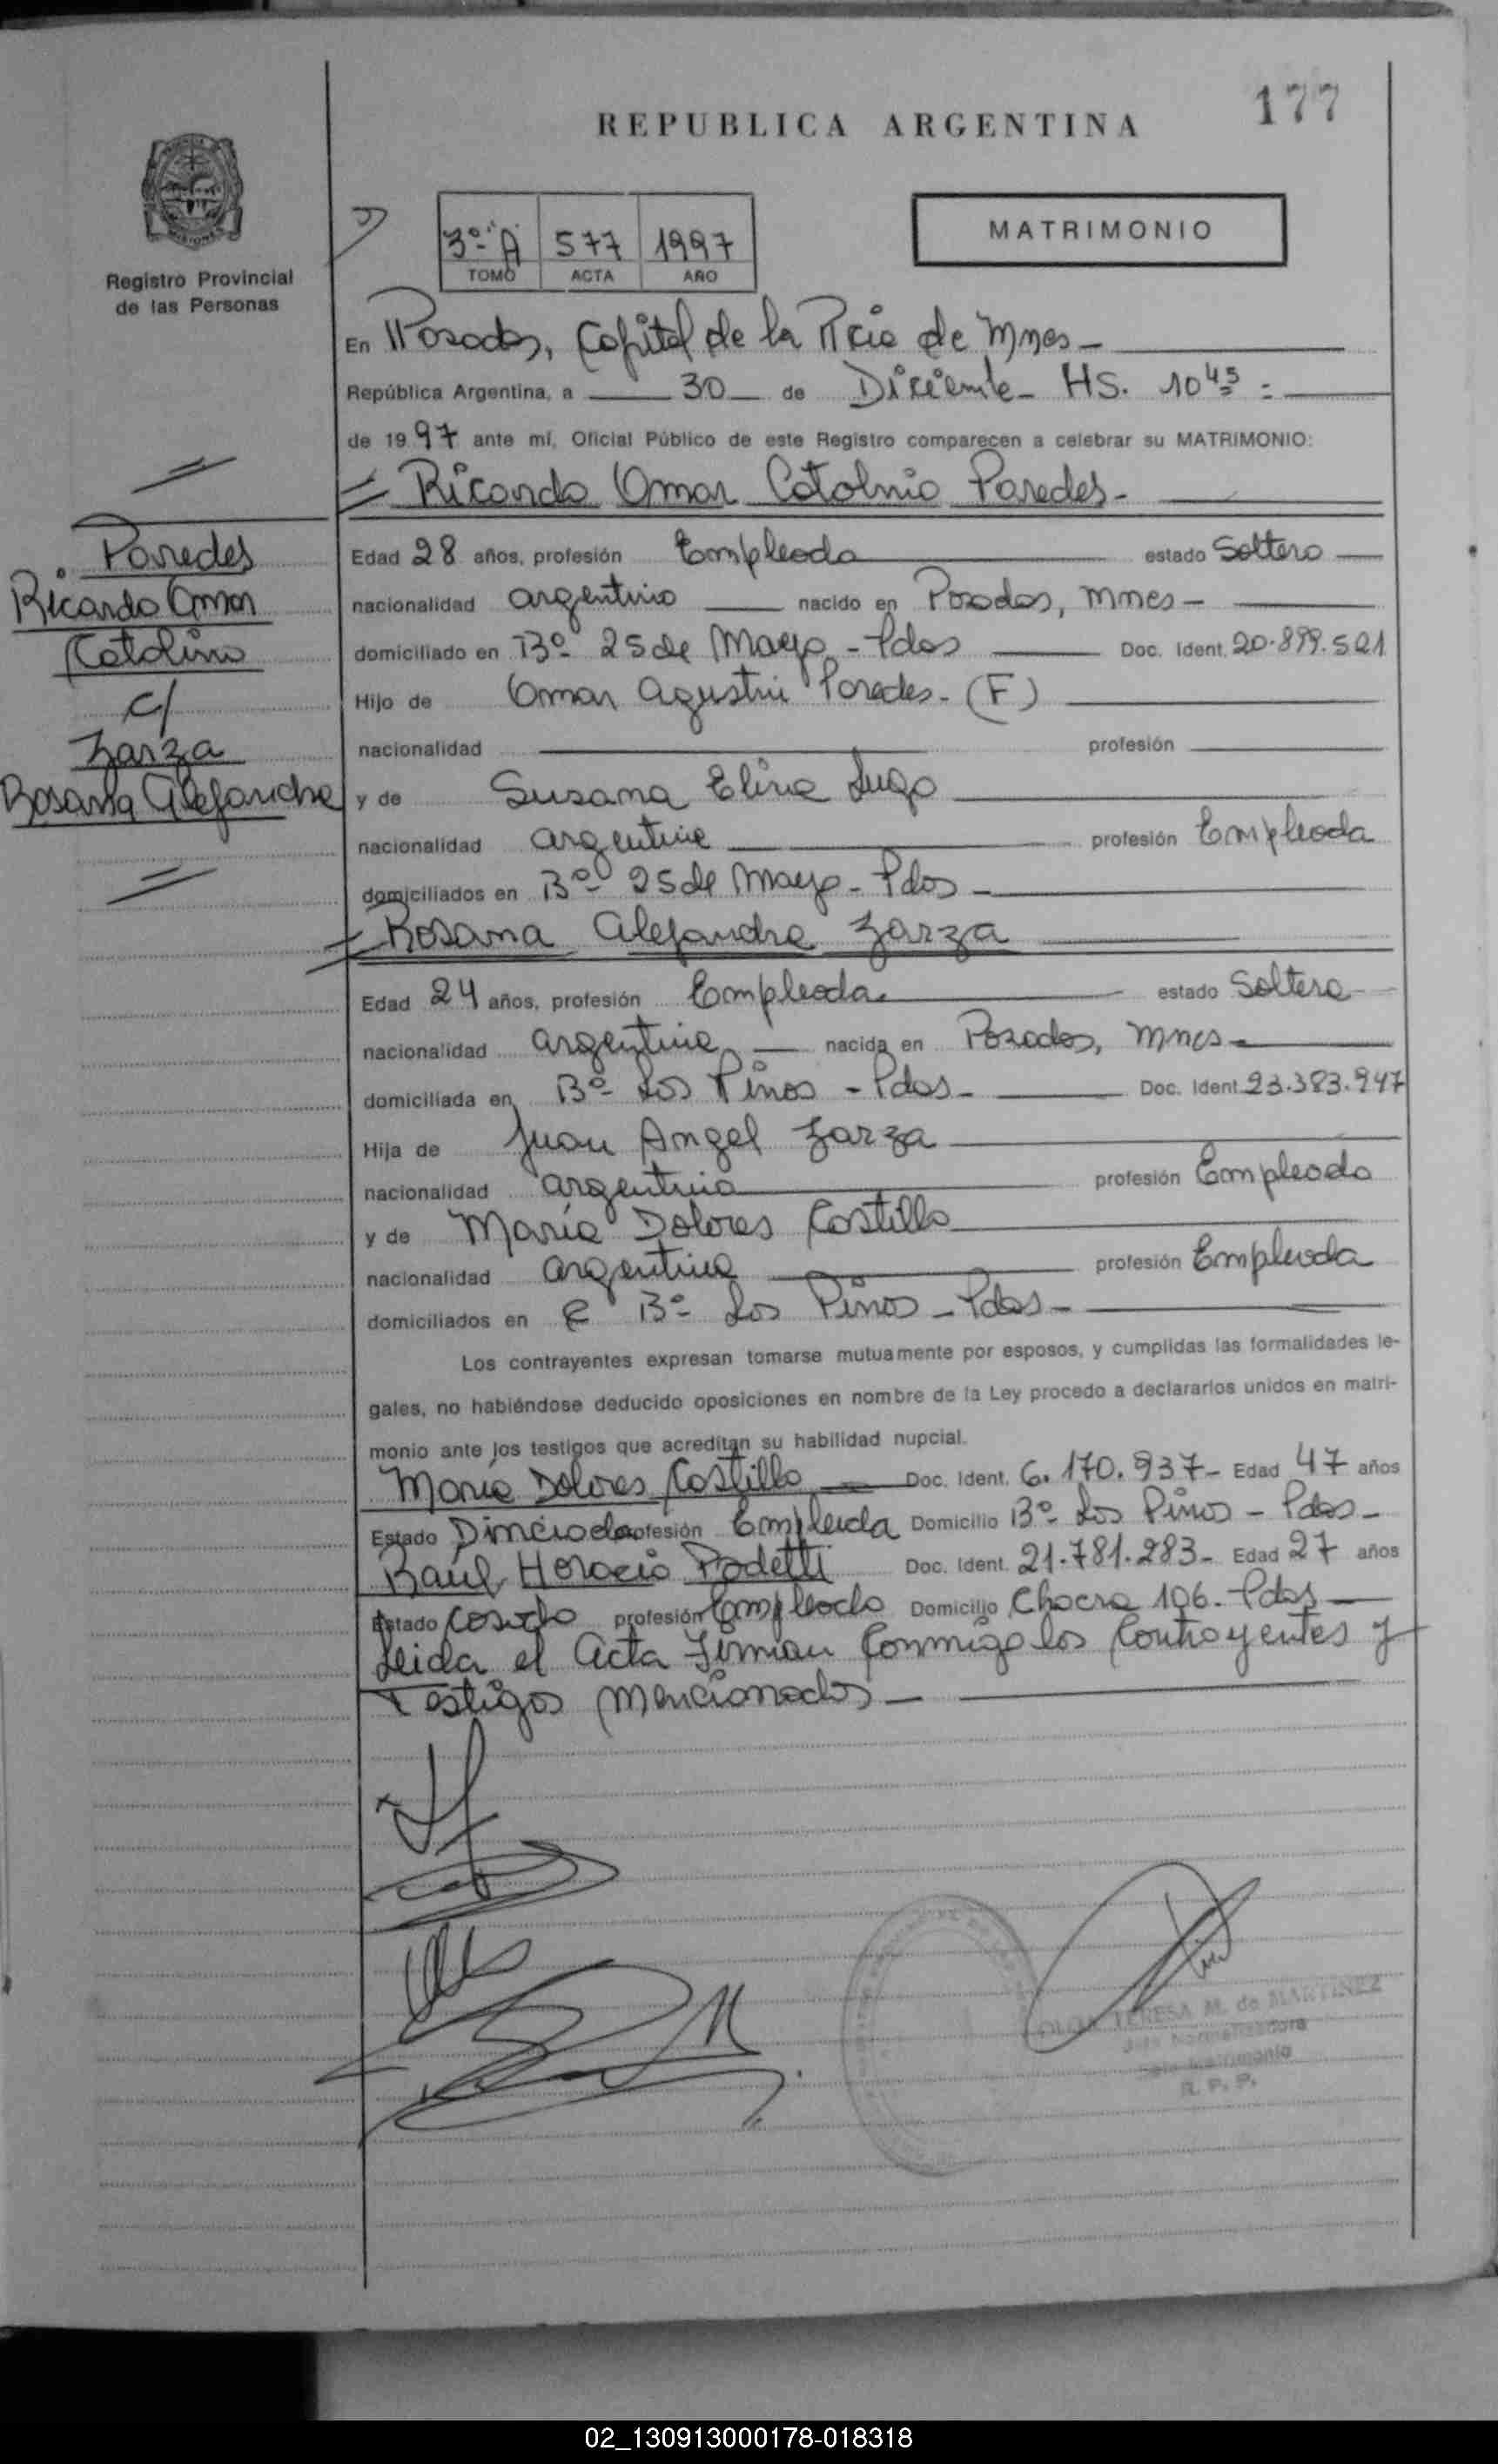 177
REPUBLICA ARGENTINA
Registro Provincial
de las Personas
3º "A" 577 1997
TOMO ACTA AÑO
MATRIMONIO
En Posadas, Capital de la Pcia de Mnes -
República Argentina, a 30 de Diciembre - HS. 10 45 =
de 19 97 ante mí, Oficial Público de este Registro comparecen a celebrar su MATRIMONIO:
= Ricardo Omar Catalino Paredes -
Paredes
Ricardo Omar
Catalino
c/
Zarza
Rosana Alejandra
Edad 28 años, profesión Empleado estado Soltero
nacionalidad argentino nacido en Posadas, Mnes -
domiciliado en Bº 25 de Mayo - Pdas Doc. Ident. 20.899.521
Hijo de Omar Agustin Paredes - (F)
nacionalidad profesión
y de Susana Elina Lugo
nacionalidad argentina profesión Empleada
domiciliados en Bº 25 de Mayo - Pdas -
= Rosana Alejandra Zarza
Edad 24 años, profesión Empleada estado Soltera
nacionalidad argentina nacida en Posadas, Mnes -
domiciliada en Bº Los Pinos - Pdas - Doc. Ident. 23.383.947
Hija de Juan Angel Zarza
nacionalidad argentino profesión Empleado
y de María Dolores Costillo
nacionalidad argentina profesión Empleada
domiciliados en Bº Los Pinos - Pdas -
Los contrayentes expresan tomarse mutuamente por esposos, y cumplidas las formalidades le-
gales, no habiéndose deducido oposiciones en nombre de la Ley procedo a declararlos unidos en matri-
monio ante los testigos que acreditan su habilidad nupcial.
María Dolores Costillo Doc. Ident. 6.170.937 - Edad 47 años
Estado profesión Empleada Domicilio Bº Los Pinos - Pdas -
Raúl Horacio Podetti Doc. Ident. 21.781.283 - Edad 27 años
Estado Casado profesión Empleado Domicilio Chacra 106 - Pdas
Leida el Acta Firman Conmigo los Contrayentes y
Testigos mencionados -
OLGA TERESA M. de MARTINEZ
Sala Matrimonio
R. P. P.
02_130913000178-018318